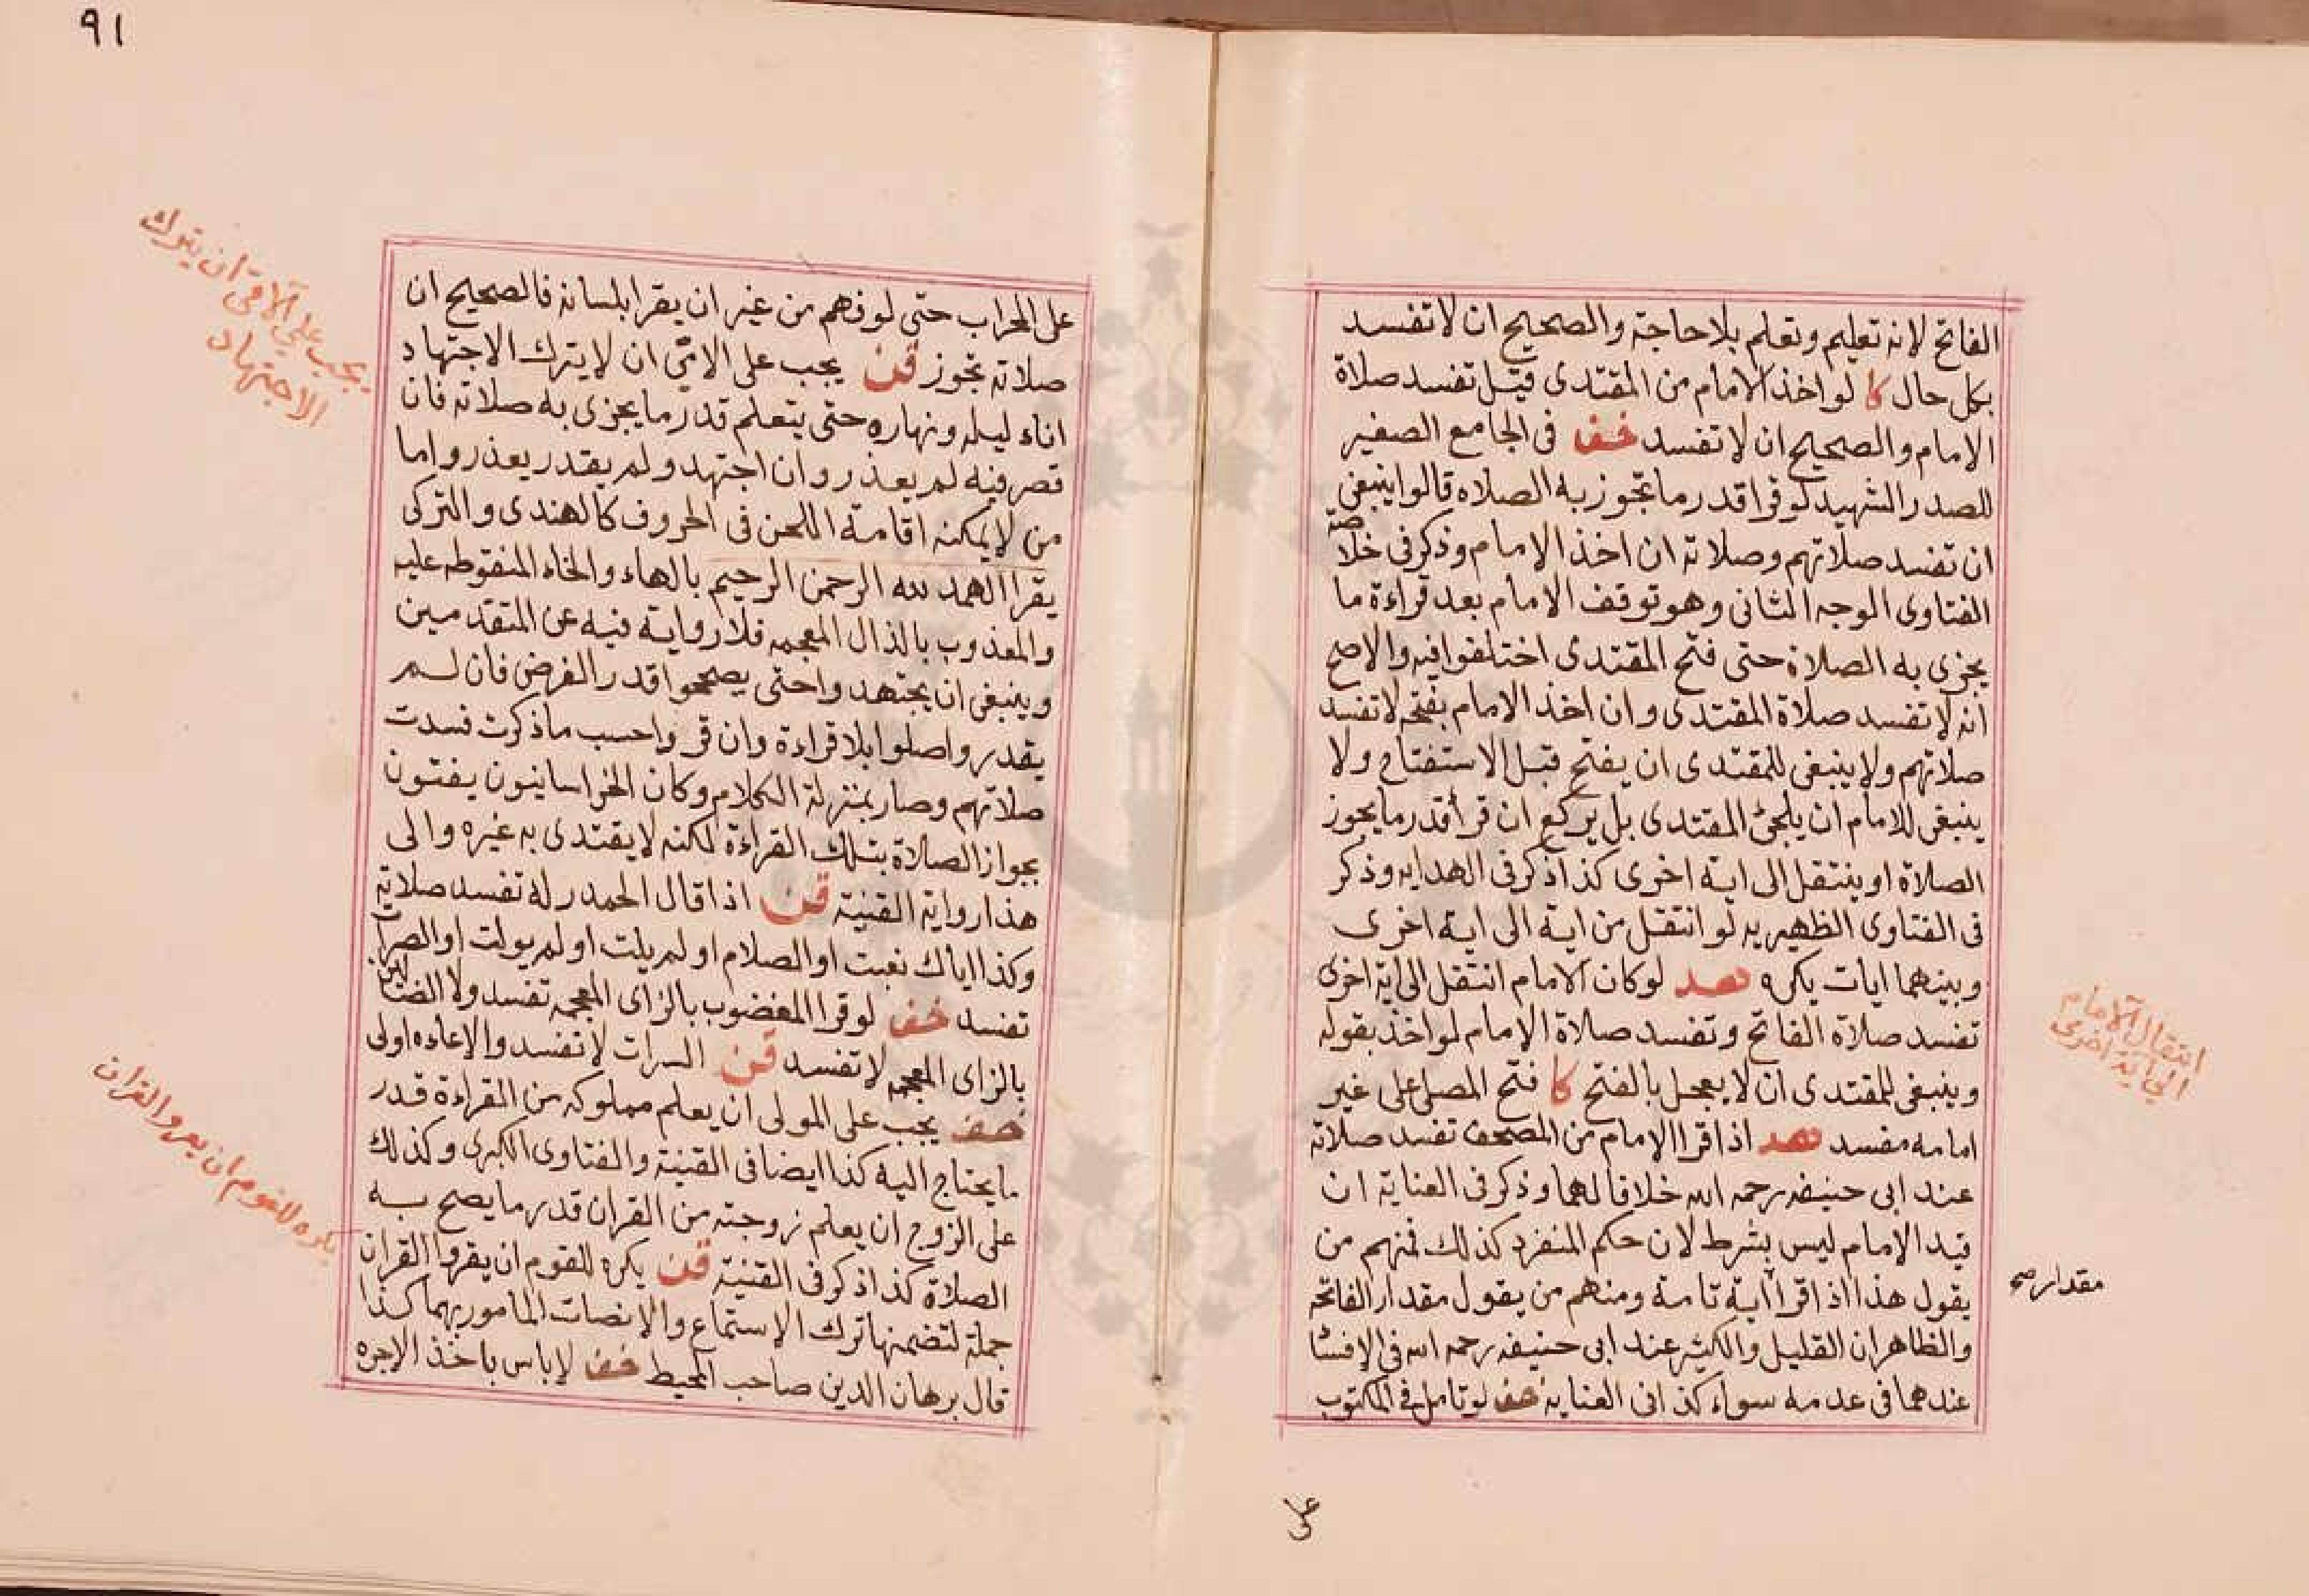 الفاتح لانه تعليم وتعلم بلا حاجة والصحيح ان لا تفسد
بكل حال كا لو اخذ الامام من المقتدى قيل تفسد صلاة
الامام والصحيح ان لا تفسد خف فى الجامع الصغير
للصدر الشهيد لو قرا قدر ما تجوز به الصلاه قالوا ينبغى
ان تفسد صلاتهم وصلاته ان اخذ الامام وذكر فى خلاصة
الفتاوى الوجه الثانى وهو توقف الامام بعد قراءة ما
يجزى به الصلاة حتى فتح المقتدى اختلفوا فيه والاصح
انه لا تفسد صلاة المقتدى وان اخذ الامام بفتحه لا تفسد
صلاتهم ولا ينبغى للمقتدى ان يفتح قبل الاستفتاح ولا
ينبغى للامام ان يلجئ المقتدى بل يركع ان قرأ قدر ما يجوز
الصلاة او ينتقل الى اية اخرى كذا ذكر فى الهدايه وذكر
فى الفتاوى الظهيريه لو انتقل من اية الى اية اخرى
وبينهما ايات يكره هد لو كان الامام انتقل الى اية اخرى
تفسد صلاة الفاتح وتفسد صلاة الامام لو اخذ بقوله
وينبغى للمقتدى ان لا يعجل بالفتح كا فتح المصلى على غير
امامه مفسد هد اذا قرا الامام من المصحف تفسد صلاته
عند ابى حنيفه رحمه الله خلافا لهما وذكر فى العناية ان
قيد الامام ليس بشرط لان حكم المنفرد كذلك فمنهم من
يقول هذا اذا قرا آية تامة ومنهم من يقول مقدار الفاتحة
والظاهر ان القليل والكثير عند ابى حنيفه رحمه الله فى الافسا
عندهما فى عدمه سواء كذا فى العناية خف لو تامل فى المكتوب
انتقال الامام
الى آية اخرى
مقدار صح
على
٩١
على المحراب حتى لو فهم من غير ان يقرا بلسانه فالصحيح ان
صلاته تجوز قن يجب على الامّى ان لا يترك الاجتهاد
اناء ليله ونهاره حتى يتعلم قدر ما يجزى به صلاته فان
قصر فيه لم يعذر وان اجتهد ولم يقدر يعذر واما
من لا يمكنه اقامة اللحن فى الحروف كالهندى والتركى
يقرا الهمد لله الرحمن الرحيم بالهاء والخاء المنقوطه عليه
والمغذوب بالذال المعجمه فلا رواية فيه عن المتقدمين
وينبغى ان يجتهدوا حتى يصححوا قدر الفرض فان لم
يقدروا صلوا بلا قراءة وان قروا حسب ما ذكرت فسدت
صلاتهم وصار بمنزلة الكلام وكان الخراسانيون يفتون
بجواز الصلاة بتلك القراءة لكنه لا يقتدى به غيره والى
هذا رواية القنية قن اذا قال الحمد رله تفسد صلاته
وكذا اياك نعبت او الصلام او لم يلت او لم يولت او الصرا
تفسد خف لو قرا المغضوب بالزاى المعجمه تفسد ولا الضالين
بالزاى المعجمه لا تفسد قن السرات لا تفسد والاعاده اولى
خف يجب على المولى ان يعلم مملوكه من القراءة قدر
ما يحتاج اليه كذا ايضا فى القنية والفتاوى الكبرى وكذلك
على الزوج ان يعلم زوجته من القران قدر ما يصح به
الصلاة كذا ذكر فى القنية قن يكره للقوم ان يقروا القران
جملة لتضمنها ترك الاستماع والانصات المامور بهما كذا
قال برهان الدين صاحب المحيط خف لا باس باخذ الاجره
يجب على الامى ان يترك
الاجتهاد
يكره للقوم ان يقروا القران